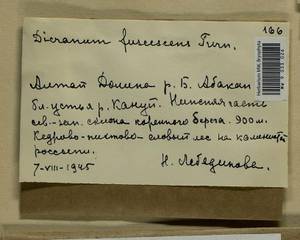 166
Dicranum fuscescens Turn.
Алтай Долина р. Б. Абакан
бл. устья р. Нижняя часть
сев.-зап. склона коренного берега. 900 м.
Кедрово-пихтово-еловый лес на каменист
россыпи.
7-VIII-1945
Н. Лебединова